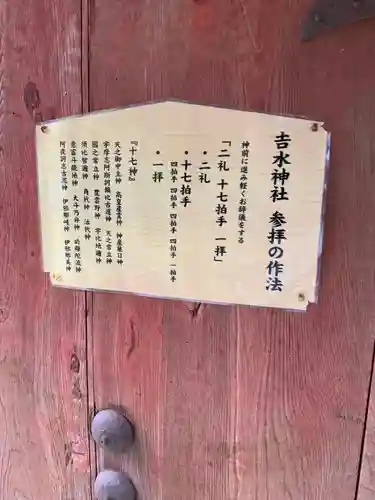 吉水神社 参拝の作法
神前に進み軽くお辞儀をする
「二礼 十七拍手 一拝」
・二礼
・十七拍手
四拍手 四拍手 四拍手 四拍手 一拍手
・一拝
『十七神』
天之御中主神 高皇産霊神 神産巣日神
宇摩志阿斯訶備比古遅神 天之常立神
國之常立神 豊雲野神 宇比地邇神
須比智邇神 角杙神 活杙神
意富斗能地神 大斗乃弁神 於母陀流神
阿夜訶志古泥神 伊邪那岐神 伊邪那美神